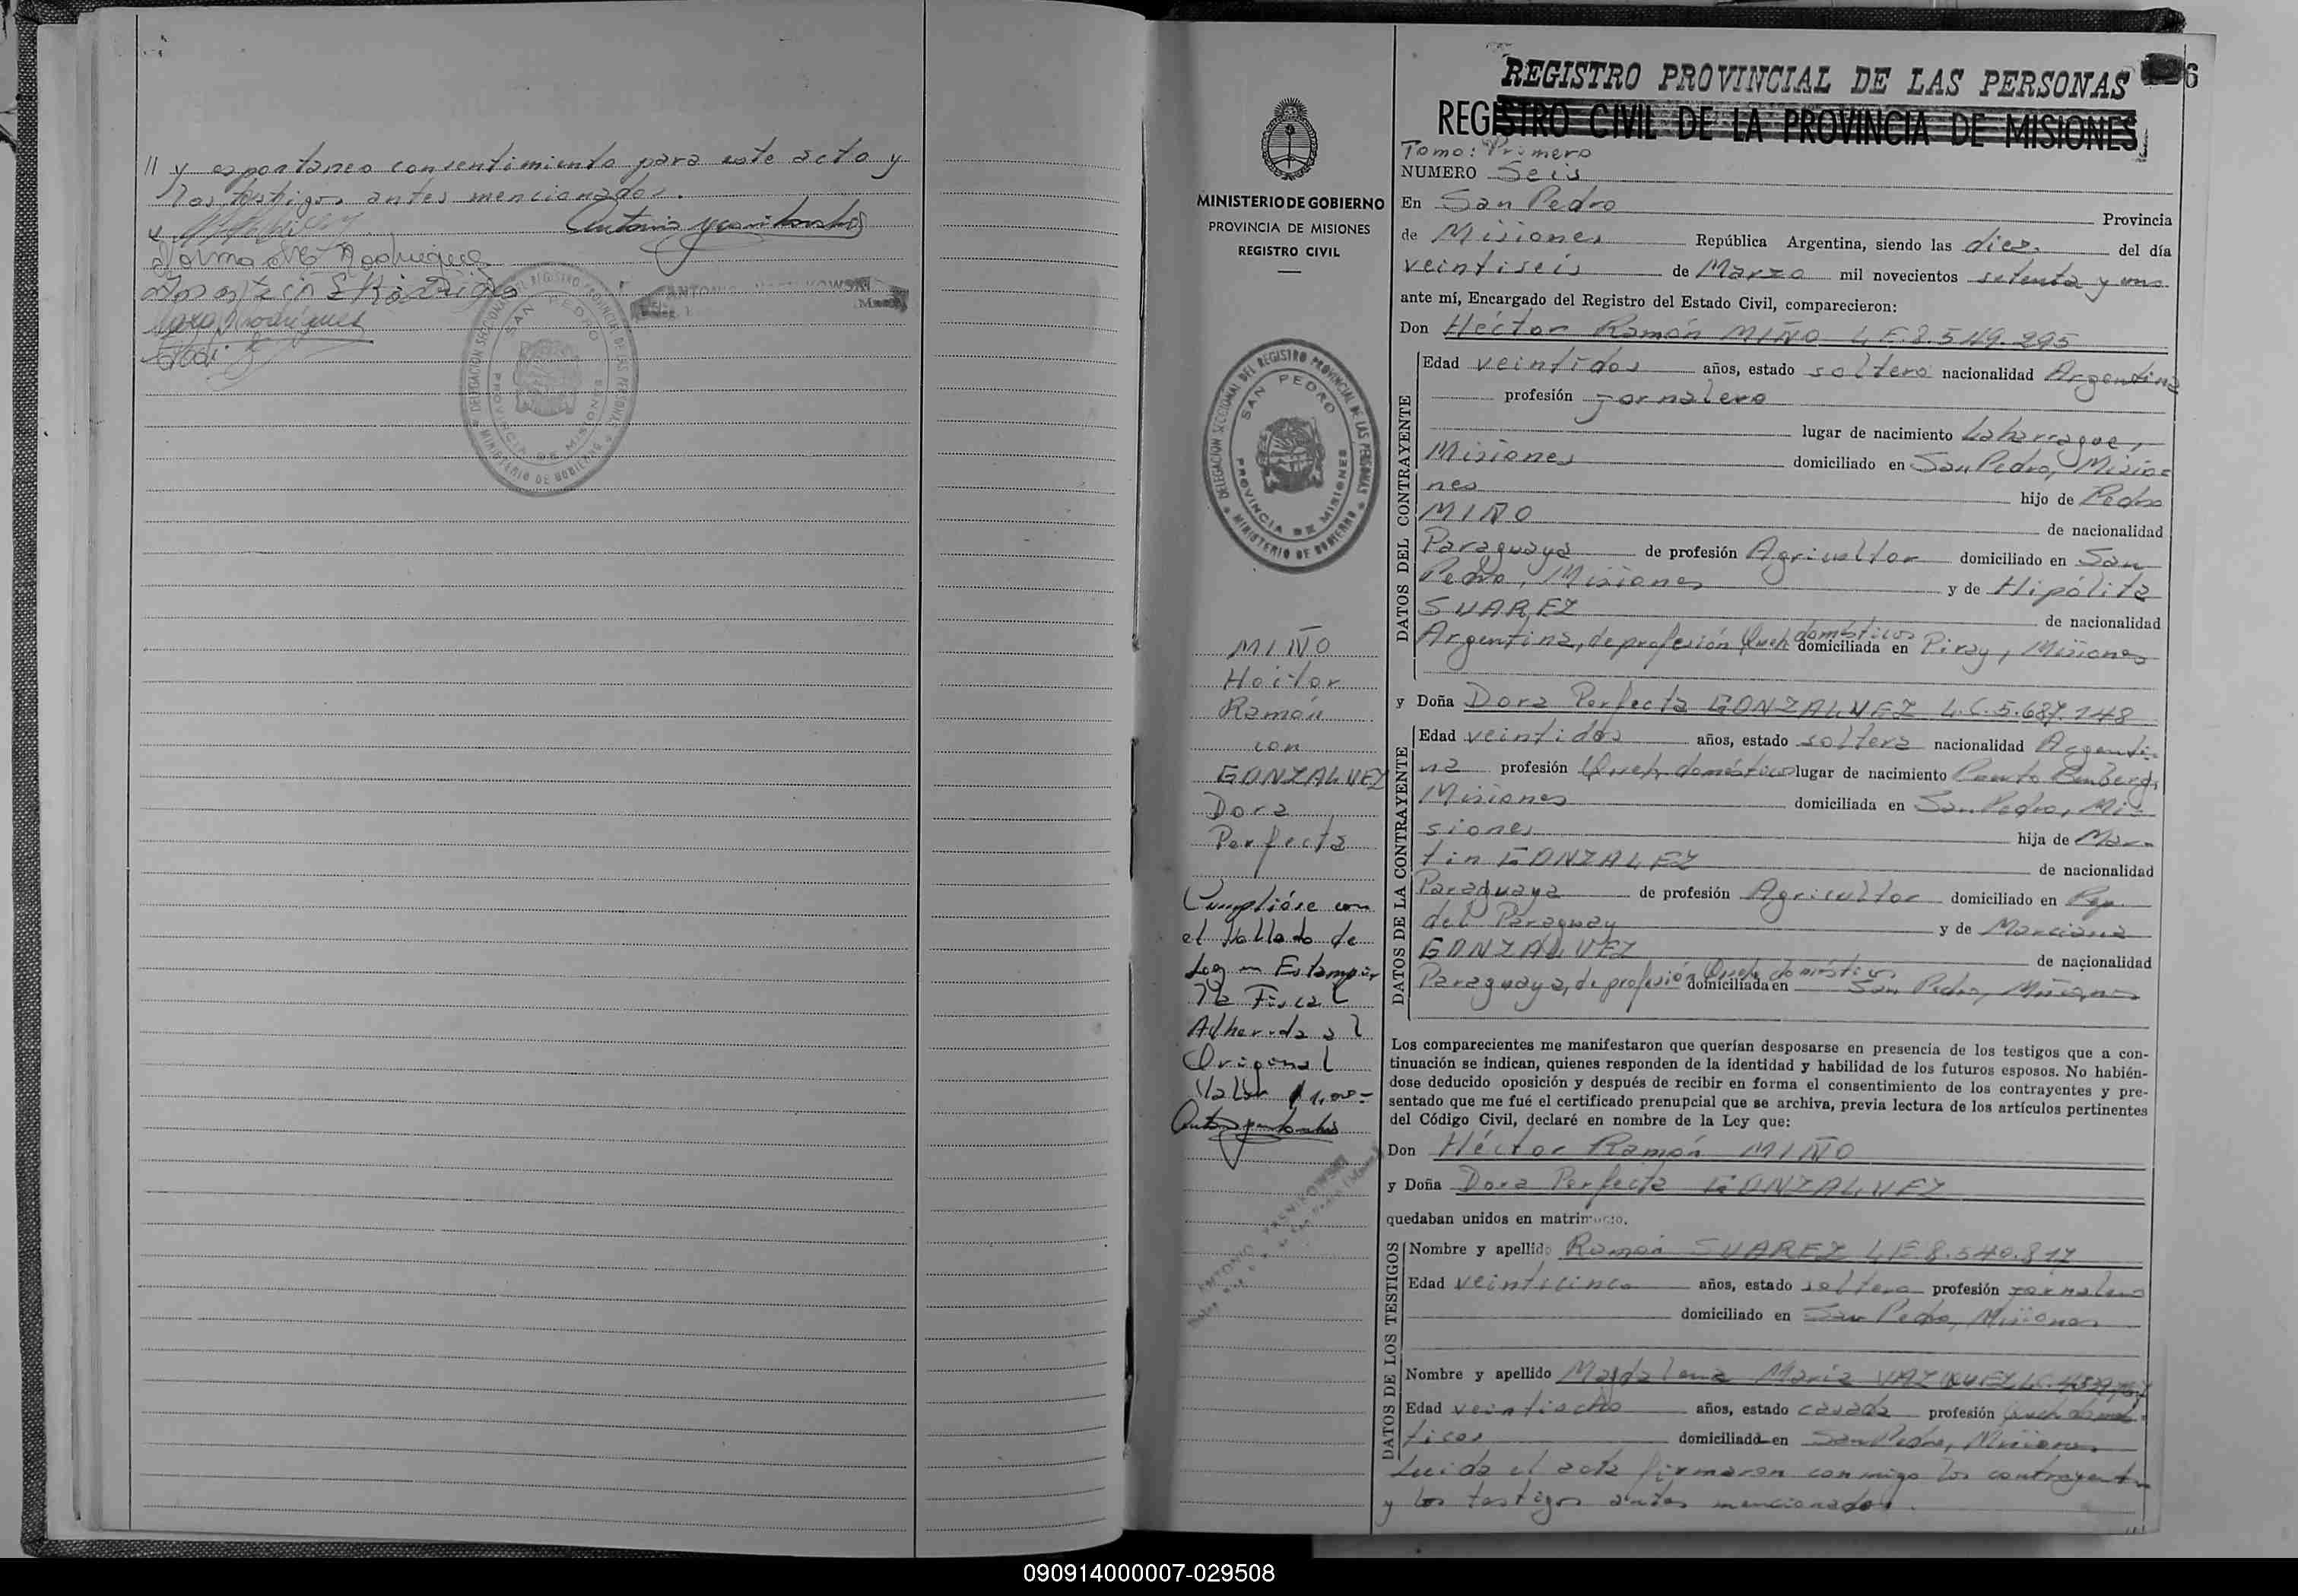 // y espontaneo consentimiento para este acto y
los testigos antes mencionados.
SAN PEDRO
PROVINCIA DE MISIONES
MINISTERIO DE GOBIERNO
REGISTRO PROVINCIAL DE LAS PERSONAS
6
REGISTRO CIVIL DE LA PROVINCIA DE MISIONES
MINISTERIO DE GOBIERNO
PROVINCIA DE MISIONES
REGISTRO CIVIL
DELEGACION SECCIONAL DEL REGISTRO PROVINCIAL DE LAS PERSONAS
SAN PEDRO
PROVINCIA DE MISIONES
MINISTERIO DE GOBIERNO
MIÑO
Héctor
Ramón
con
GONZALVEZ
Dora
Perfecta
Cumplióse con
el sellado de
Ley en Estampi-
lla Fiscal
Adherida al
Original
Valor $ 1,00.-
Tomo: Primero
NUMERO Seis
En San Pedro Provincia
de Misiones República Argentina, siendo las diez del día
veintiseis de Marzo mil novecientos setenta y uno
ante mí, Encargado del Registro del Estado Civil, comparecieron:
Don Héctor Ramón MIÑO L.E. 8.549.295
DATOS DEL CONTRAYENTE
Edad veintidos años, estado soltero nacionalidad Argentina
profesión jornalero
lugar de nacimiento Laharrague,
Misiones domiciliado en San Pedro, Misio=
nes hijo de Pedro
MIÑO de nacionalidad
Paraguaya de profesión Agricultor domiciliado en San
Pedro, Misiones y de Hipólita
SUAREZ de nacionalidad
Argentina, de profesión Queh. domésticos domiciliada en Piray, Misiones
y Doña Dora Perfecta GONZALVEZ L.C. 5.687.148
DATOS DE LA CONTRAYENTE
Edad veintidos años, estado soltera nacionalidad Argenti-
na profesión Queh. domésticos lugar de nacimiento Puerto Bemberg,
Misiones domiciliada en San Pedro, Mi-
siones hija de Mar-
tin GONZALEZ de nacionalidad
Paraguaya de profesión Agricultor domiciliado en Rep.
del Paraguay y de Marciana
GONZALVEZ de nacionalidad
Paraguaya, de profesión Queh. domésticos domiciliada en San Pedro, Misiones
Los comparecientes me manifestaron que querían desposarse en presencia de los testigos que a con-
tinuación se indican, quienes responden de la identidad y habilidad de los futuros esposos. No habién-
dose deducido oposición y después de recibir en forma el consentimiento de los contrayentes y pre-
sentado que me fué el certificado prenupcial que se archiva, previa lectura de los artículos pertinentes
del Código Civil, declaré en nombre de la Ley que:
Don Héctor Ramón MIÑO
y Doña Dora Perfecta GONZALVEZ
quedaban unidos en matrimonio.
DATOS DE LOS TESTIGOS
Nombre y apellido Ramón SUAREZ L.E. 8.540.817
Edad veinticinco años, estado soltero profesión jornalero
domiciliado en San Pedro, Misiones
Nombre y apellido Magdalena Maria VAZQUEZ L.C.
Edad veintiocho años, estado casada profesión Queh. domes-
ticos domiciliada en San Pedro, Misiones
Leida el acta firmaron conmigo los contrayentes
y los testigos antes mencionados.
090914000007-029508